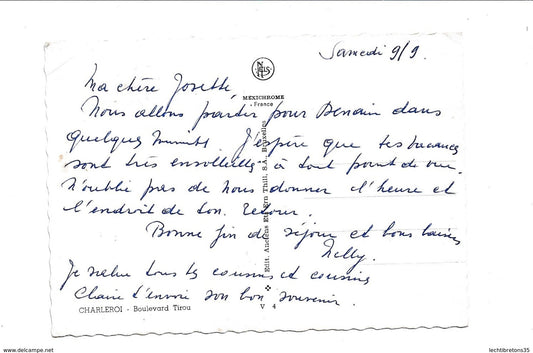 Samedi 9/9.
NELS
MEXICHROME
- France
Ma chère Josette
Nous allons partir pour Denain dans
quelques minutes. J'espère que tes vacances
sont très ensoleillées à tout point de vue.
N'oublie pas de nous donner l'heure et
l'endroit de ton retour.
Bonne fin de séjour et bons baisers
Nelly.
Je salue tous les cousins et cousines
Claire t'envoie son bon souvenir.
Edit. Anciens Ets Ern. Thill, S.A., Bruxelles
CHARLEROI - Boulevard Tirou
V 4
www.delcampe.net
lechtibretons35